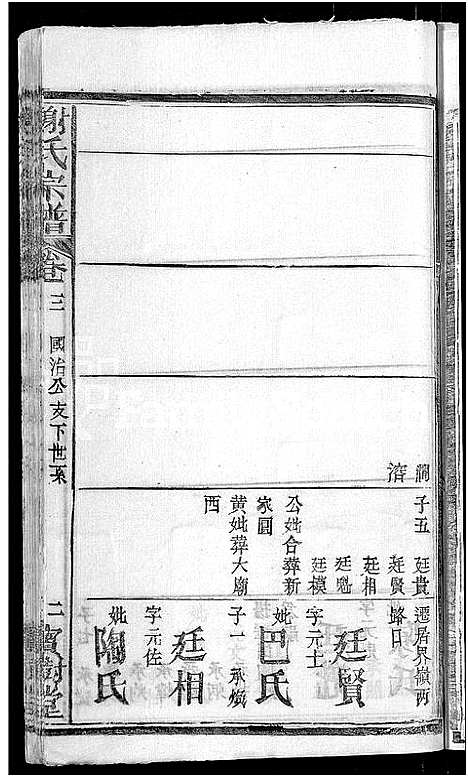 謝氏宗譜
卷三
國治公支下世系
二
寶樹堂
澗
溶
子五　廷貴
廷賢
廷相
廷魁
廷模
公妣合葬新
家園
黄妣葬大廟
西
遷居界嶺西
路口
廷賢
字元士
妣巴氏
子一　承煥
廷相
字元佐
妣陶氏